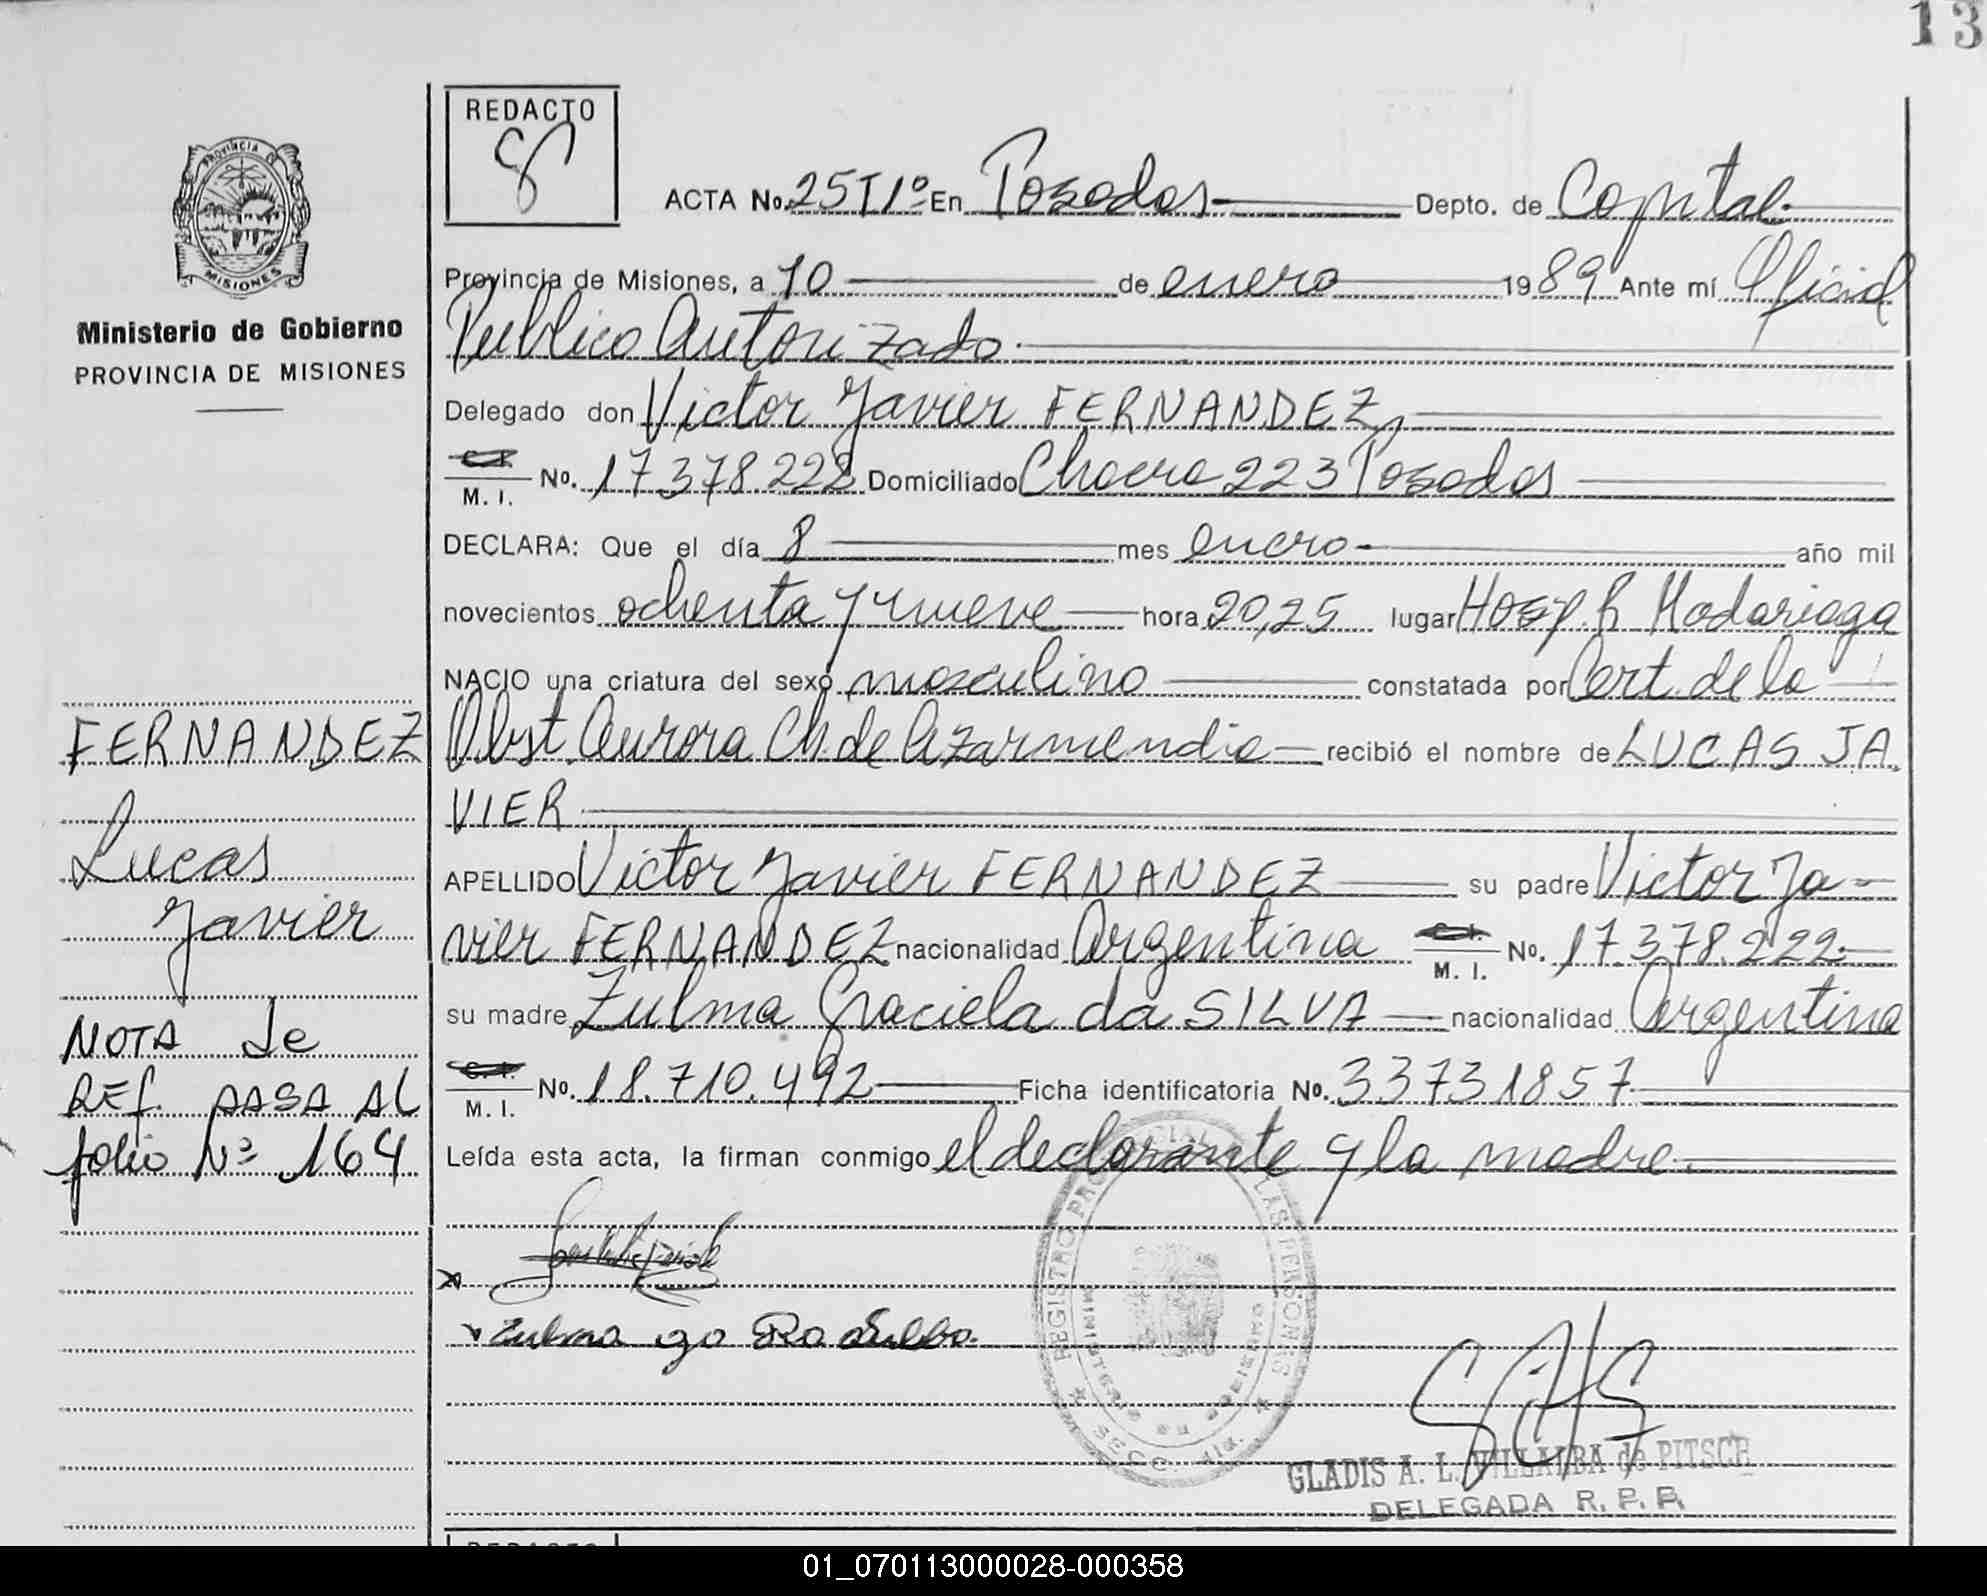 13
REDACTO
PROVINCIA DE
MISIONES
Ministerio de Gobierno
PROVINCIA DE MISIONES
ACTA No. 25T1º En Posadas Depto. de Capital
Provincia de Misiones, a 10 de enero 1989 Ante mí Oficial
Publico Autorizado
Delegado don Victor Javier FERNANDEZ,
C. I.
M. I. No. 17.378.222 Domiciliado Chacra 223 Posadas
DECLARA: Que el día 8 mes enero año mil
novecientos ochenta y nueve hora 20,25 lugar Hosp. R Madariaga
NACIO una criatura del sexo masculino constatada por Cert. de la
Obst. Aurora Ch. de Azarmendia recibió el nombre de LUCAS JA
VIER
APELLIDO Victor Javier FERNANDEZ su padre Victor Ja-
vier FERNANDEZ nacionalidad Argentina C. I.
M. I. No. 17.378.222
su madre Zulma Graciela da SILVA nacionalidad Argentina
C. I.
M. I. No. 18.710.492 Ficha identificatoria No. 33731857
Leída esta acta, la firman conmigo el declarante y la madre.
FERNANDEZ
Lucas
Javier
NOTA de
REf. PASA AL
folio Nº 164
Zulma
REGISTRO PROVINCIAL DE LAS PERSONAS
MINISTERIO DE GOBIERNO
SECC. 1ra.
GLADIS A. L. VILLALBA de PITSCH
DELEGADA R. P. P.
REDACTO
01_070113000028-000358